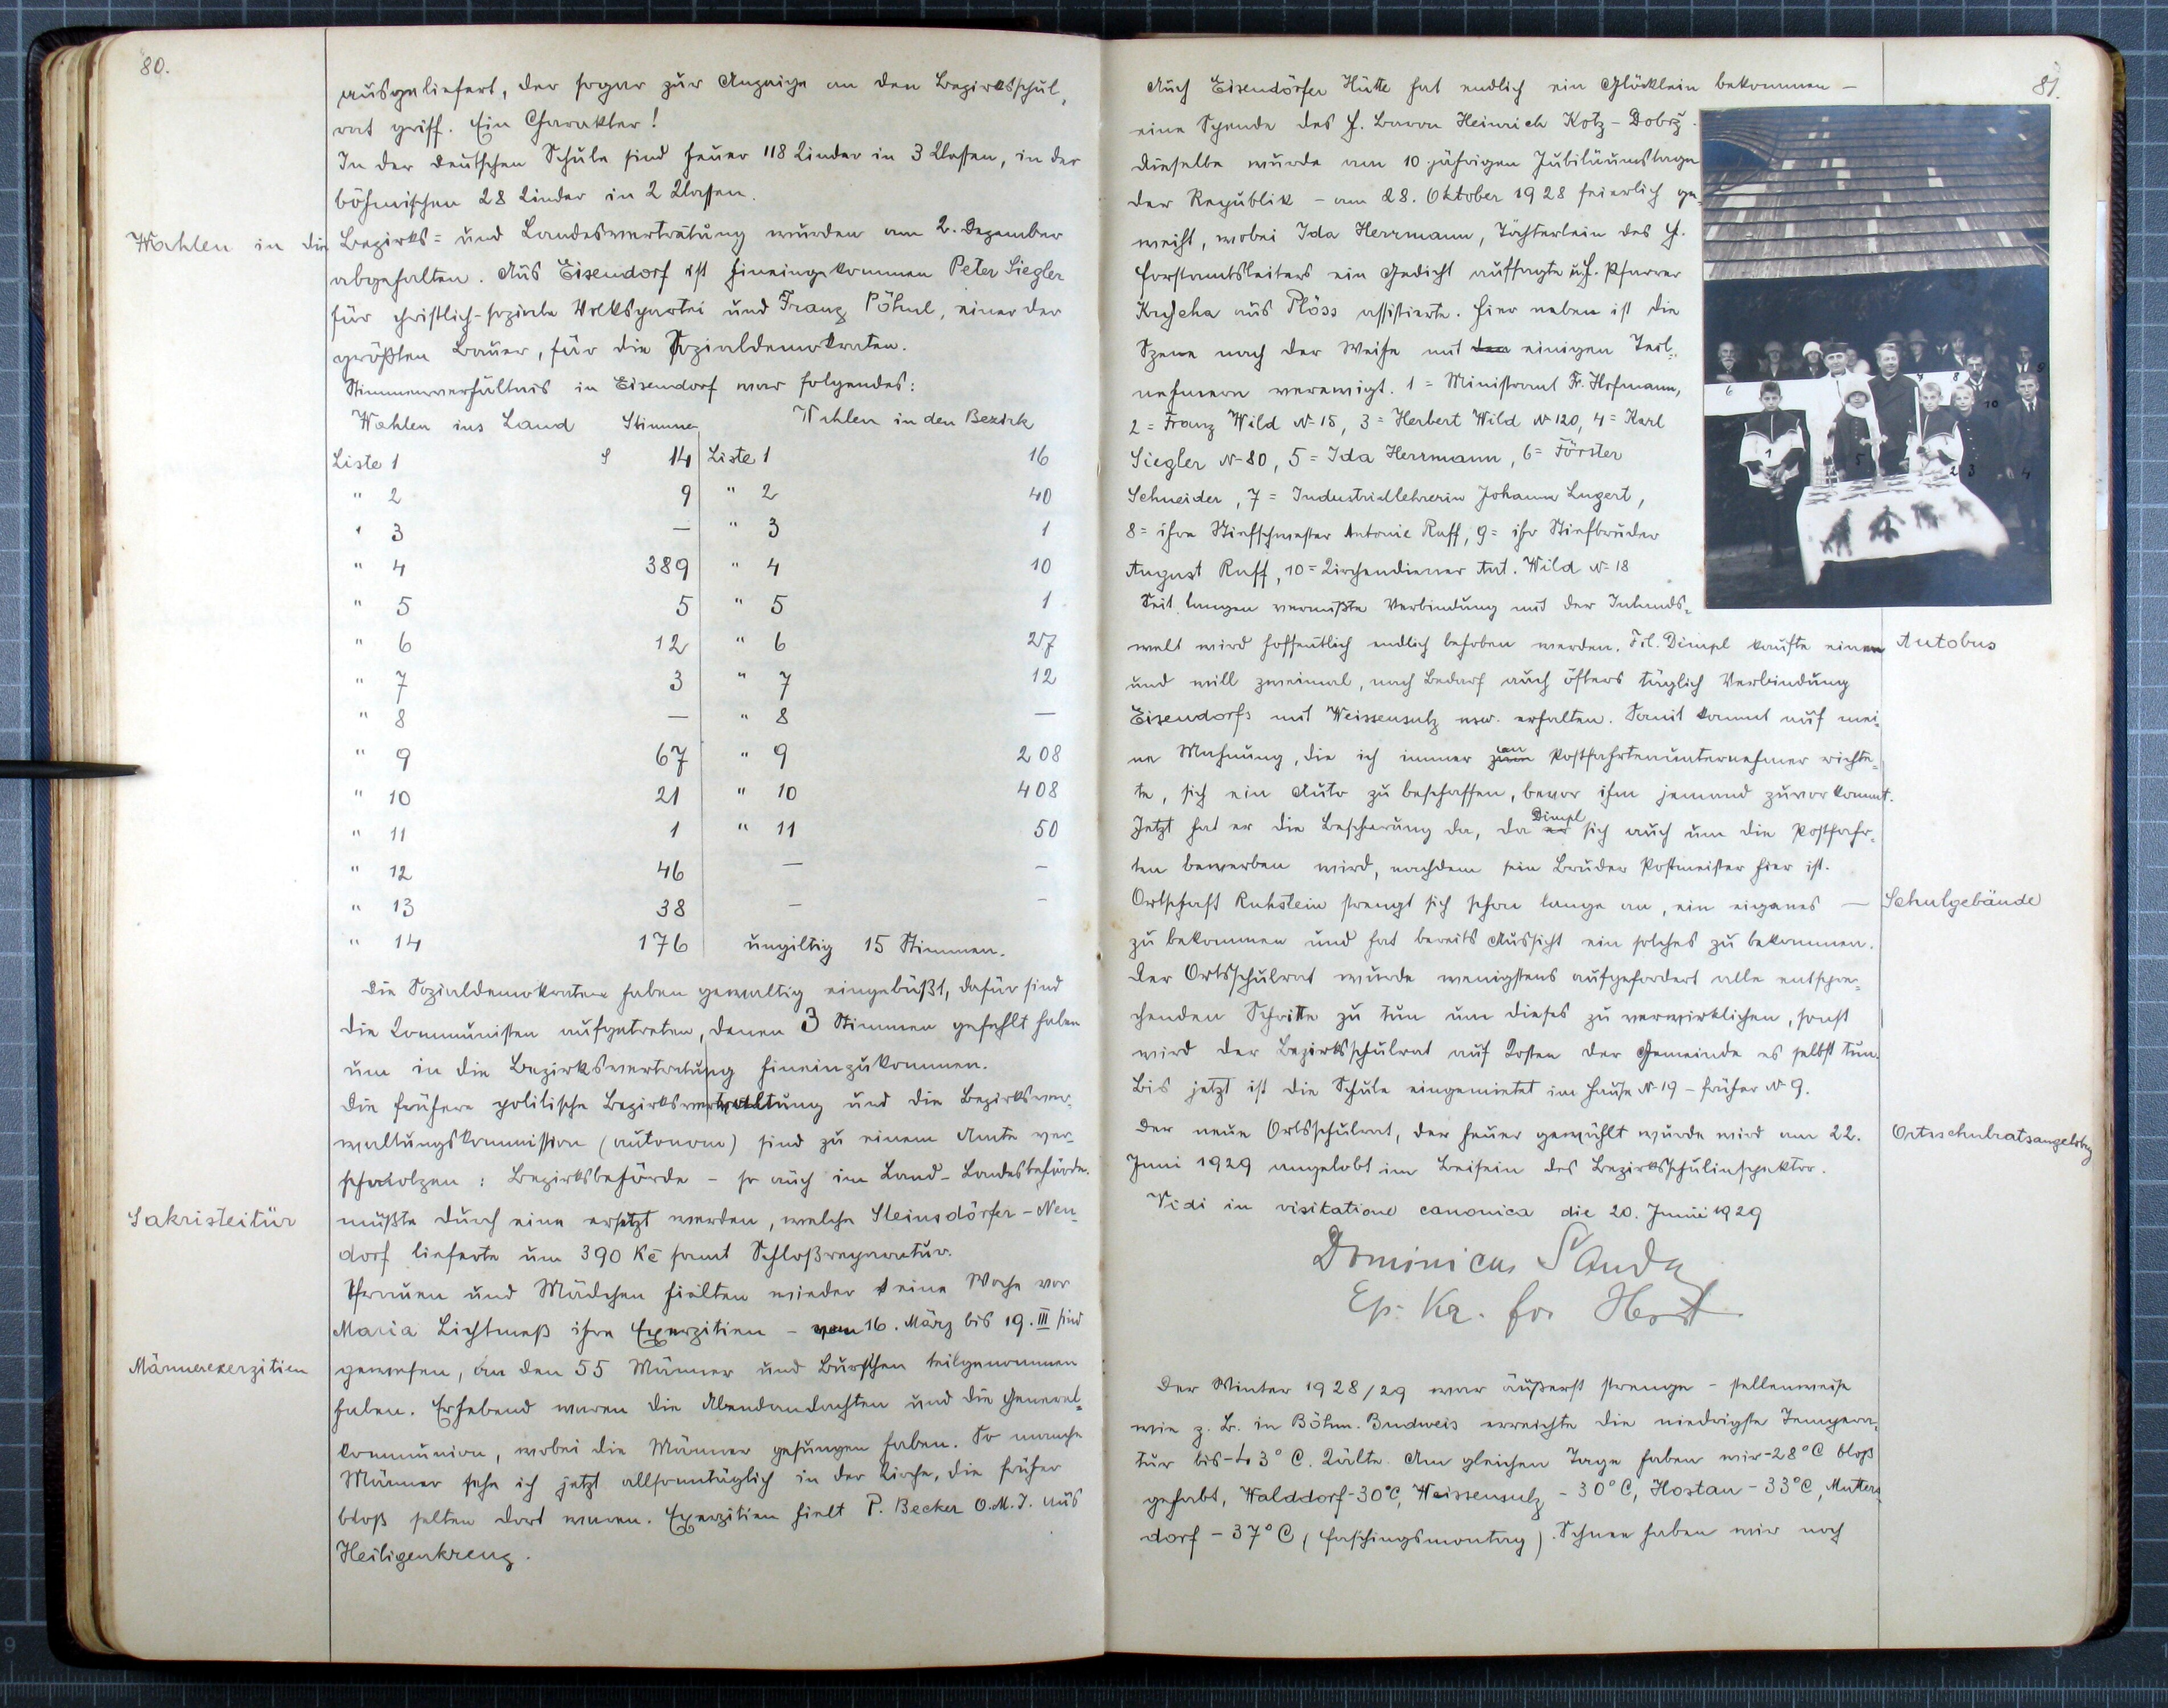 80.
ausgeliefert, der sogar zur Anzeige an den Bezirksschul-
rat griff. Ein Charakter!
In der deutschen Schule sind heuer 118 Kinder in 3 Klassen, in der
böhmischen 28 Kinder in 2 Klassen.
Wahlen in die Bezirks- und Landesvertretung wurden am 2. Dezember
abgehalten. Aus Eisendorf ist hineingekommen Peter Siegler
für christlich-soziale Volkspartei und Franz Pöhnl, einer der
größten Bauer, für die Sozialdemokraten.
Stimmenverhältnis in Eisendorf war folgendes:
Wahlen ins Land Stimme Wahlen in den Bezirk
Liste 1 14 Liste 1 16
" 2 9 " 2 40
" 3 — " 3 1
" 4 389 " 4 10
" 5 5 " 5 1
" 6 12 " 6 27
" 7 3 " 7 12
" 8 — " 8 —
" 9 67 " 9 208
" 10 21 " 10 408
" 11 1 " 11 50
" 12 46 — –
" 13 38 – –
" 14 176 ungiltig 15 Stimmen.
Die Sozialdemokraten haben gewaltig eingebüßt, dafür sind
die Kommunisten aufgetreten, denen 3 Stimmen gefehlt haben
um in die Bezirksvertretung hineinzukommen.
Die frühere politische Bezirksverwaltung und die Bezirksver-
waltungskommission (autonom) sind zu einem Amte ver-
schmolzen: Bezirksbehörde – so auch im Land – Landesbehörde.
Sakristeitür mußte durch eine ersetzt werden, welche Steinsdörfer – Neu-
dorf lieferte um 390 Kč samt Schloßreparatur.
Frauen und Mädchen hielten wieder eine Woche vor
Maria Lichtmeß ihre Exerzitien – vom 16. März bis 19. III sind
Männerexerzitien gewesen, an den 55 Männer und Burschen teilgenommen
haben. Erhebend waren die Abendandachten und die General-
kommunion, wobei die Männer gesungen haben. So manche
Männer sehe ich jetzt allsonntäglich in der Kirche, die früher
bloß selten dort waren. Exerzitien hielt P. Becker O.M.I. aus
Heiligenkreuz.
81.
Auch Eisendörfer Hütte hat endlich ein Glöcklein bekommen –
eine Spende des H. Baron Heinrich Kotz – Dobrž.
Dieselbe wurde am 10 jährigen Jubiläumstage
der Republik – am 28. Oktober 1928 feierlich ge-
weiht, wobei Ida Herrmann, Töchterlein des H.
Forstamtsleiters ein Gedicht aufsagte u. H. Pfarrer
aus Plöss assistierte. Hier neben ist die
Szene nach der Weihe mit den einigen Teil-
nehmern verewigt. 1 = Ministrant Fr. Hofmann,
2 = Franz Wild N-15, 3 = Herbert Wild N-120, 4 = Karl
Siegler N-80, 5 = Ida Herrmann, 6 = Förster
Schneider, 7 = Industriallehrerin Johanna Lugert,
8 = ihre Stiefschwester Antonie Ruff, 9 = ihr Stiefbruder
August Ruff, 10 = Kirchendiener Ant. Wild N-18
Seit langem vermißte Verbindung mit der Inlands-
welt wird hoffentlich endlich behoben werden. Frl. Dimpl kaufte einen Autobus
und will zweimal, nach Bedarf auch öfters täglich Verbindung
Eisendorfs mit Weissensulz usw. erhalten. Somit kommt auf mei-
ne Mahnung, die ich immer zum an Postfahrtenunternehmer richte-
te, sich ein Auto zu beschaffen, bevor ihm jemand zuvorkommt.
Jetzt hat er die Bescherung da, da er Dimpl sich auch um die Postfahr-
ten bewerben wird, nachdem sein Bruder Postmeister hier ist.
Ortschaft Ruhstein strengt sich schon lange an, ein eigenes — Schulgebäude
zu bekommen und hat bereits Aussicht ein solches zu bekommen.
Der Ortsschulrat wurde wenigstens aufgefordert alle entspre-
chenden Schritte zu tun um dieses zu verwirklichen, sonst
wird der Bezirksschulrat auf Kosten der Gemeinde es selbst tun.
Bis jetzt ist die Schule eingemietet im Hause N-19 – früher N 9.
Der neue Ortsschulrat, der heuer gewählt wurde wird am 22. Ortsschulratsangelobg
Juni 1929 angelobt im Beisein des Bezirksschulinspektor.
Vidi in visitatione canonica die 20. Junii 1929
Dominicus
Der Winter 1928/29 war äußerst strenge – stellenweise
wie z. B. in Böhm. Budweis erreichte die niedrigste Tempera-
tur bis C. Kälte. Am gleichen Tage haben wir -28°C bloß
gehabt, Walddorf -30°C, Weissensulz – 30°C, Hostau – 33°C, Mutters-
dorf – 37°C (Faschingsmontag). Schnee haben wir noch